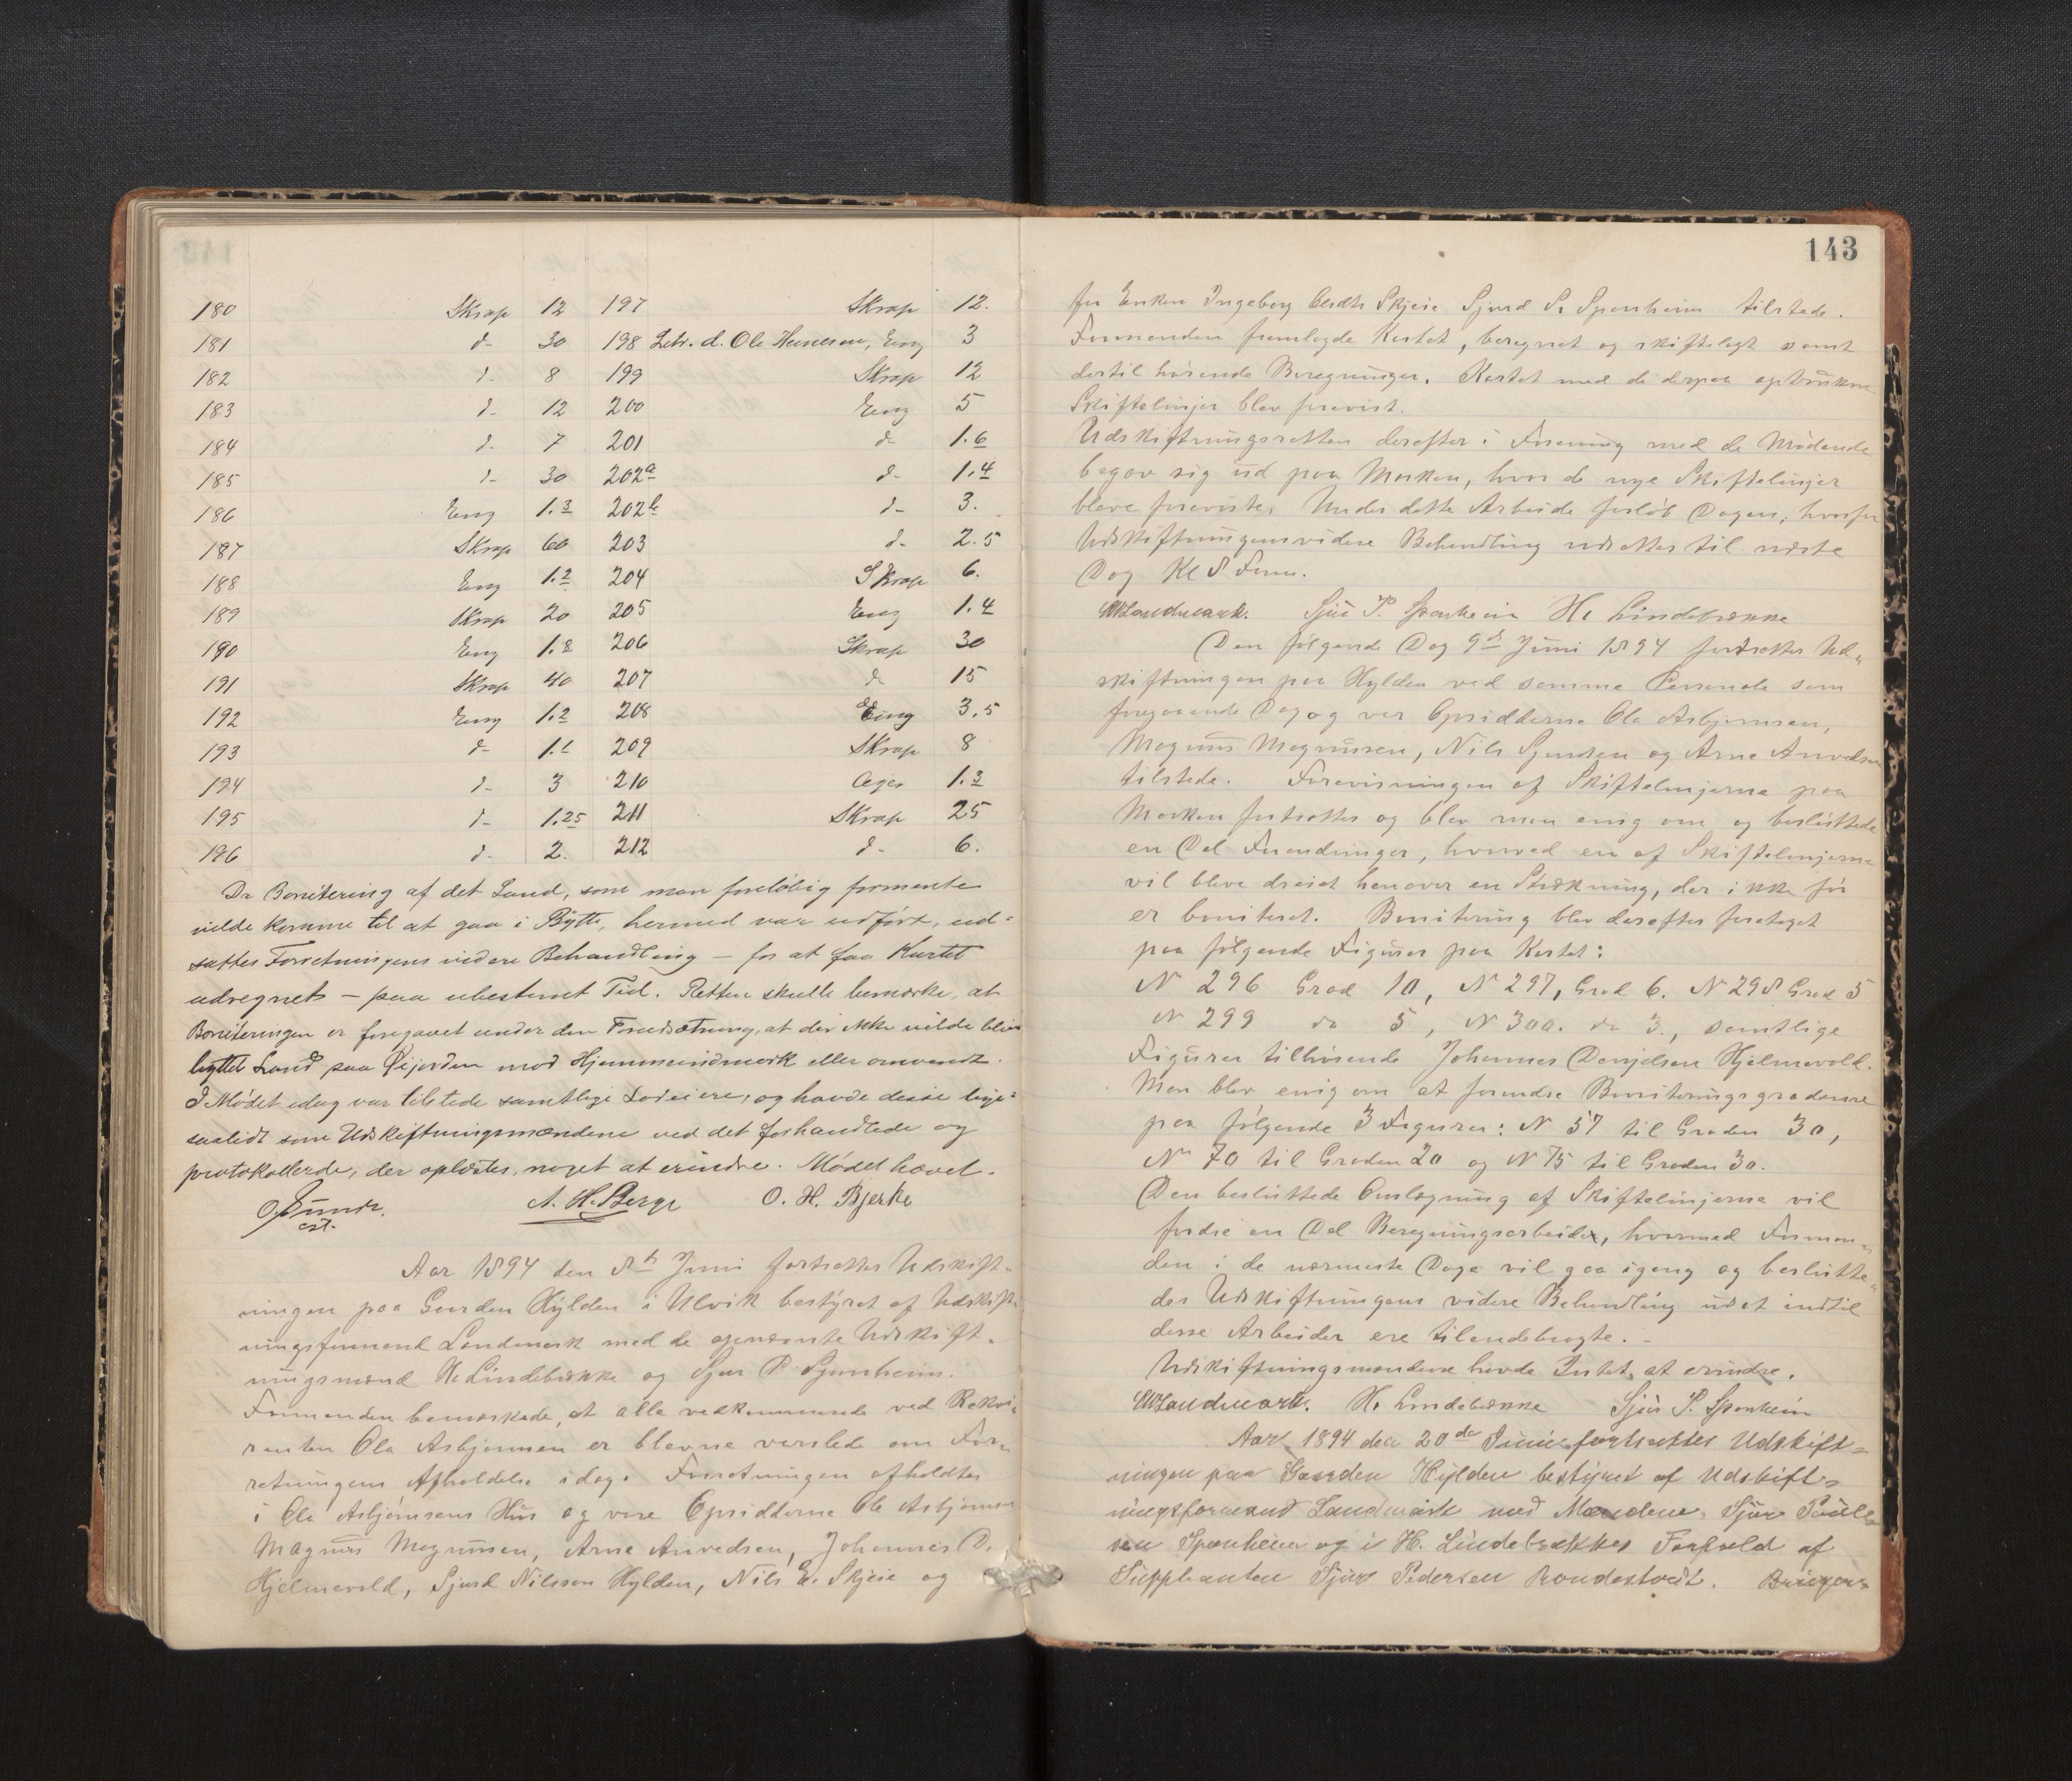 180 Skrap 12 197 Skrap 12.
181 d- 30 198 Ole Eng 3
182 d- 8 199 Skrap 12
183 d- 12 200 Eng 5
184 d- 7 201 d- 1.6
185 d- 30 202a d- 1.4
186 Eng 1.3 202b d- 3.
187 Skrap 60 203 d- 2.5
188 Eng 1.2 204 Skrap 6.
189 Skrap 20 205 Eng 1.4
190 Eng 1.8 206 Skrap 30
191 Skrap 40 207 d- 15
192 Eng 1.2 208 Eng 3.5
193 d- 209 Skrap 8
194 d- 3 210 Ager 1.3
195 d- 1.25 211 Skrap 25
196 d- 2. 212 d- 6.
Da Bonitering af det Land, som man foreløbig formente
vilde komme til at gaa i Bytte, hermed var udført, ud-
sattes Forretningens videre Behandling – for at faa Kartet
udregnet – paa ubestemt Tid. Retten skulle bemærke, at
Boniteringen er foregaaet under den Forudsætning, at der ikke vilde blive
byttet Land paa Øijorden mod Hjemmeindmark eller omvendt.
I Mødet idag var tilstede samtlige Lodeiere, og havde disse lige-
saalidt som Udskiftningsmændene ved det forhandlede og
protokollerde, der oplæstes, noget at erindre. Mødet hævet.
A. H. Berge O. H. Bjerke
cst.
Aar 1894 den 8de Juni fortsattes Udskift-
ningen paa Gaarden Hylden i Ulvik bestyret af Udskift-
ningsformand Landmark med de opnævnte Udskift-
ningsmænd H. Lindebrække og Sjur P. Sponheim.
Formanden bemærkede, at alle vedkommende ved Rekvi-
renten Ola Asbjørnsen er blevne varslede om For-
retningens Afholdelse idag. Forretningen afholdtes
i Ole Asbjørnsens Hus og vare Opsidderne Ole Asbjørnsen
Magnus Magnussen, Arne Arvedsen, Johannes D.
Hjelmevold, Sjurd Nilsson Hylden, Nils E. Skjeie og
143
for Enken Ingeborg Skjeie Sjurd P. Sponheim tilstede.
Formanden fremlagde Kartet, beregnet og skiftelagt samt
dertil hørende Beregninger. Kartet med de derpaa optrukne
Skiftelinjer blev forevist.
Udskiftningsretten derefter i Forening med de Mødende
begav sig ud paa Marken, hvor de nye Skiftelinjer
bleve foreviste. Under dette Arbeide forløb Dagen, hvorfor
Udskiftningens videre Behandling udsattes til næste
Dag Kl 8 Form.
Landmark. Sjur P. Sponheim H. Lindebrække
Den følgende Dag 9de Juni 1894 fortsattes Ud-
skiftningen paa Hylden ved samme Personale som
foregaaende Dag og var Opsidderne Ole Asbjørnsen,
Magnus Magnussen, Nils Sjurdsen og Arne Arvedsen
tilstede. Forevisningen af Skiftelinjerne paa
Marken fortsattes og blev man enig om og besluttede
en Del Forandringer, hvorved en af Skiftelinjerne
vil bleve dreiet henover en Strækning, der ikke før
er boniteret. Bonitering blev derefter foretaget
paa følgende Figurer paa Kartet:
N 296 Grad 10, N 297, Grad 6. N 298 Grad 5
N 299 do 5, N 300. do 3., samtlige
Figurer tilhørende Johannes Danjelsen Hjelmevold.
Man blev enig om at forandre Boniteringsgraderne
paa følgende 3 Figurer: N 57 til Graden 30,
N 70 til Graden 20 og N 75 til Graden 30.
Den besluttede Omlægning af Skiftelinjerne vil
fordre en Del Beregningsarbeide, hvormed Forman-
den i de nærmeste Dage vil gaa igang og beslutte-
des Udskiftningens videre Behandling udsat indtil
disse Arbeider ere tilendebragte. –
Udskiftningsmændene havde Intet at erindre.
Landmark. H. Lindebrække Sjur P. Sponheim
Aar 1894 den 20de Juni fortsattes Udskift-
ningen paa Gaarden Hylden bestyret af Udskift-
ningsformand Landmark med Mændene, Sjur
Sponheim og i H. Lindebrækkes Forfald af
Suppleanten Sjur Pedersen